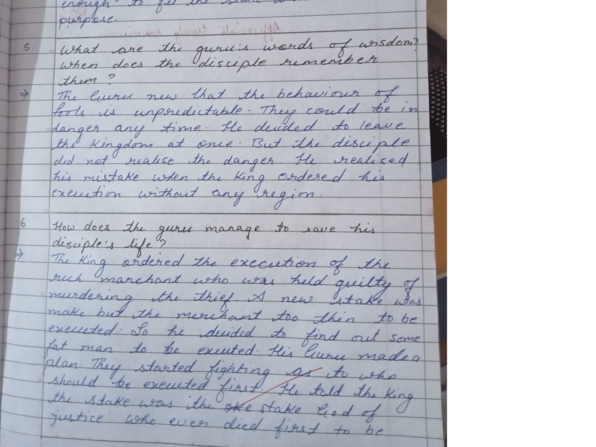 enough to fill the
purpose.
5 What are the guru's words of wisdom?
When does the disciple remember
them?
→ The Guru new that the behaviour of
fools is unpredictable. They could be in
danger any time. He decided to leave
the kingdom at once. But the disciple
did not realise the danger. He realised
his mistake when the King ordered his
execution without any region.
6 How does the guru manage to save his
disciple's life?
→ The King ordered the execution of the
rich marchant who was held guilty of
murdering the thief. A new stake was
make but the merchant too thin to be
executed. So he decided to find out some
fat man to be exuted. His Guru made a
plan They started fighting as to who
should be executed first. He told the King
the stake was the stake God of
justice who even died first to be